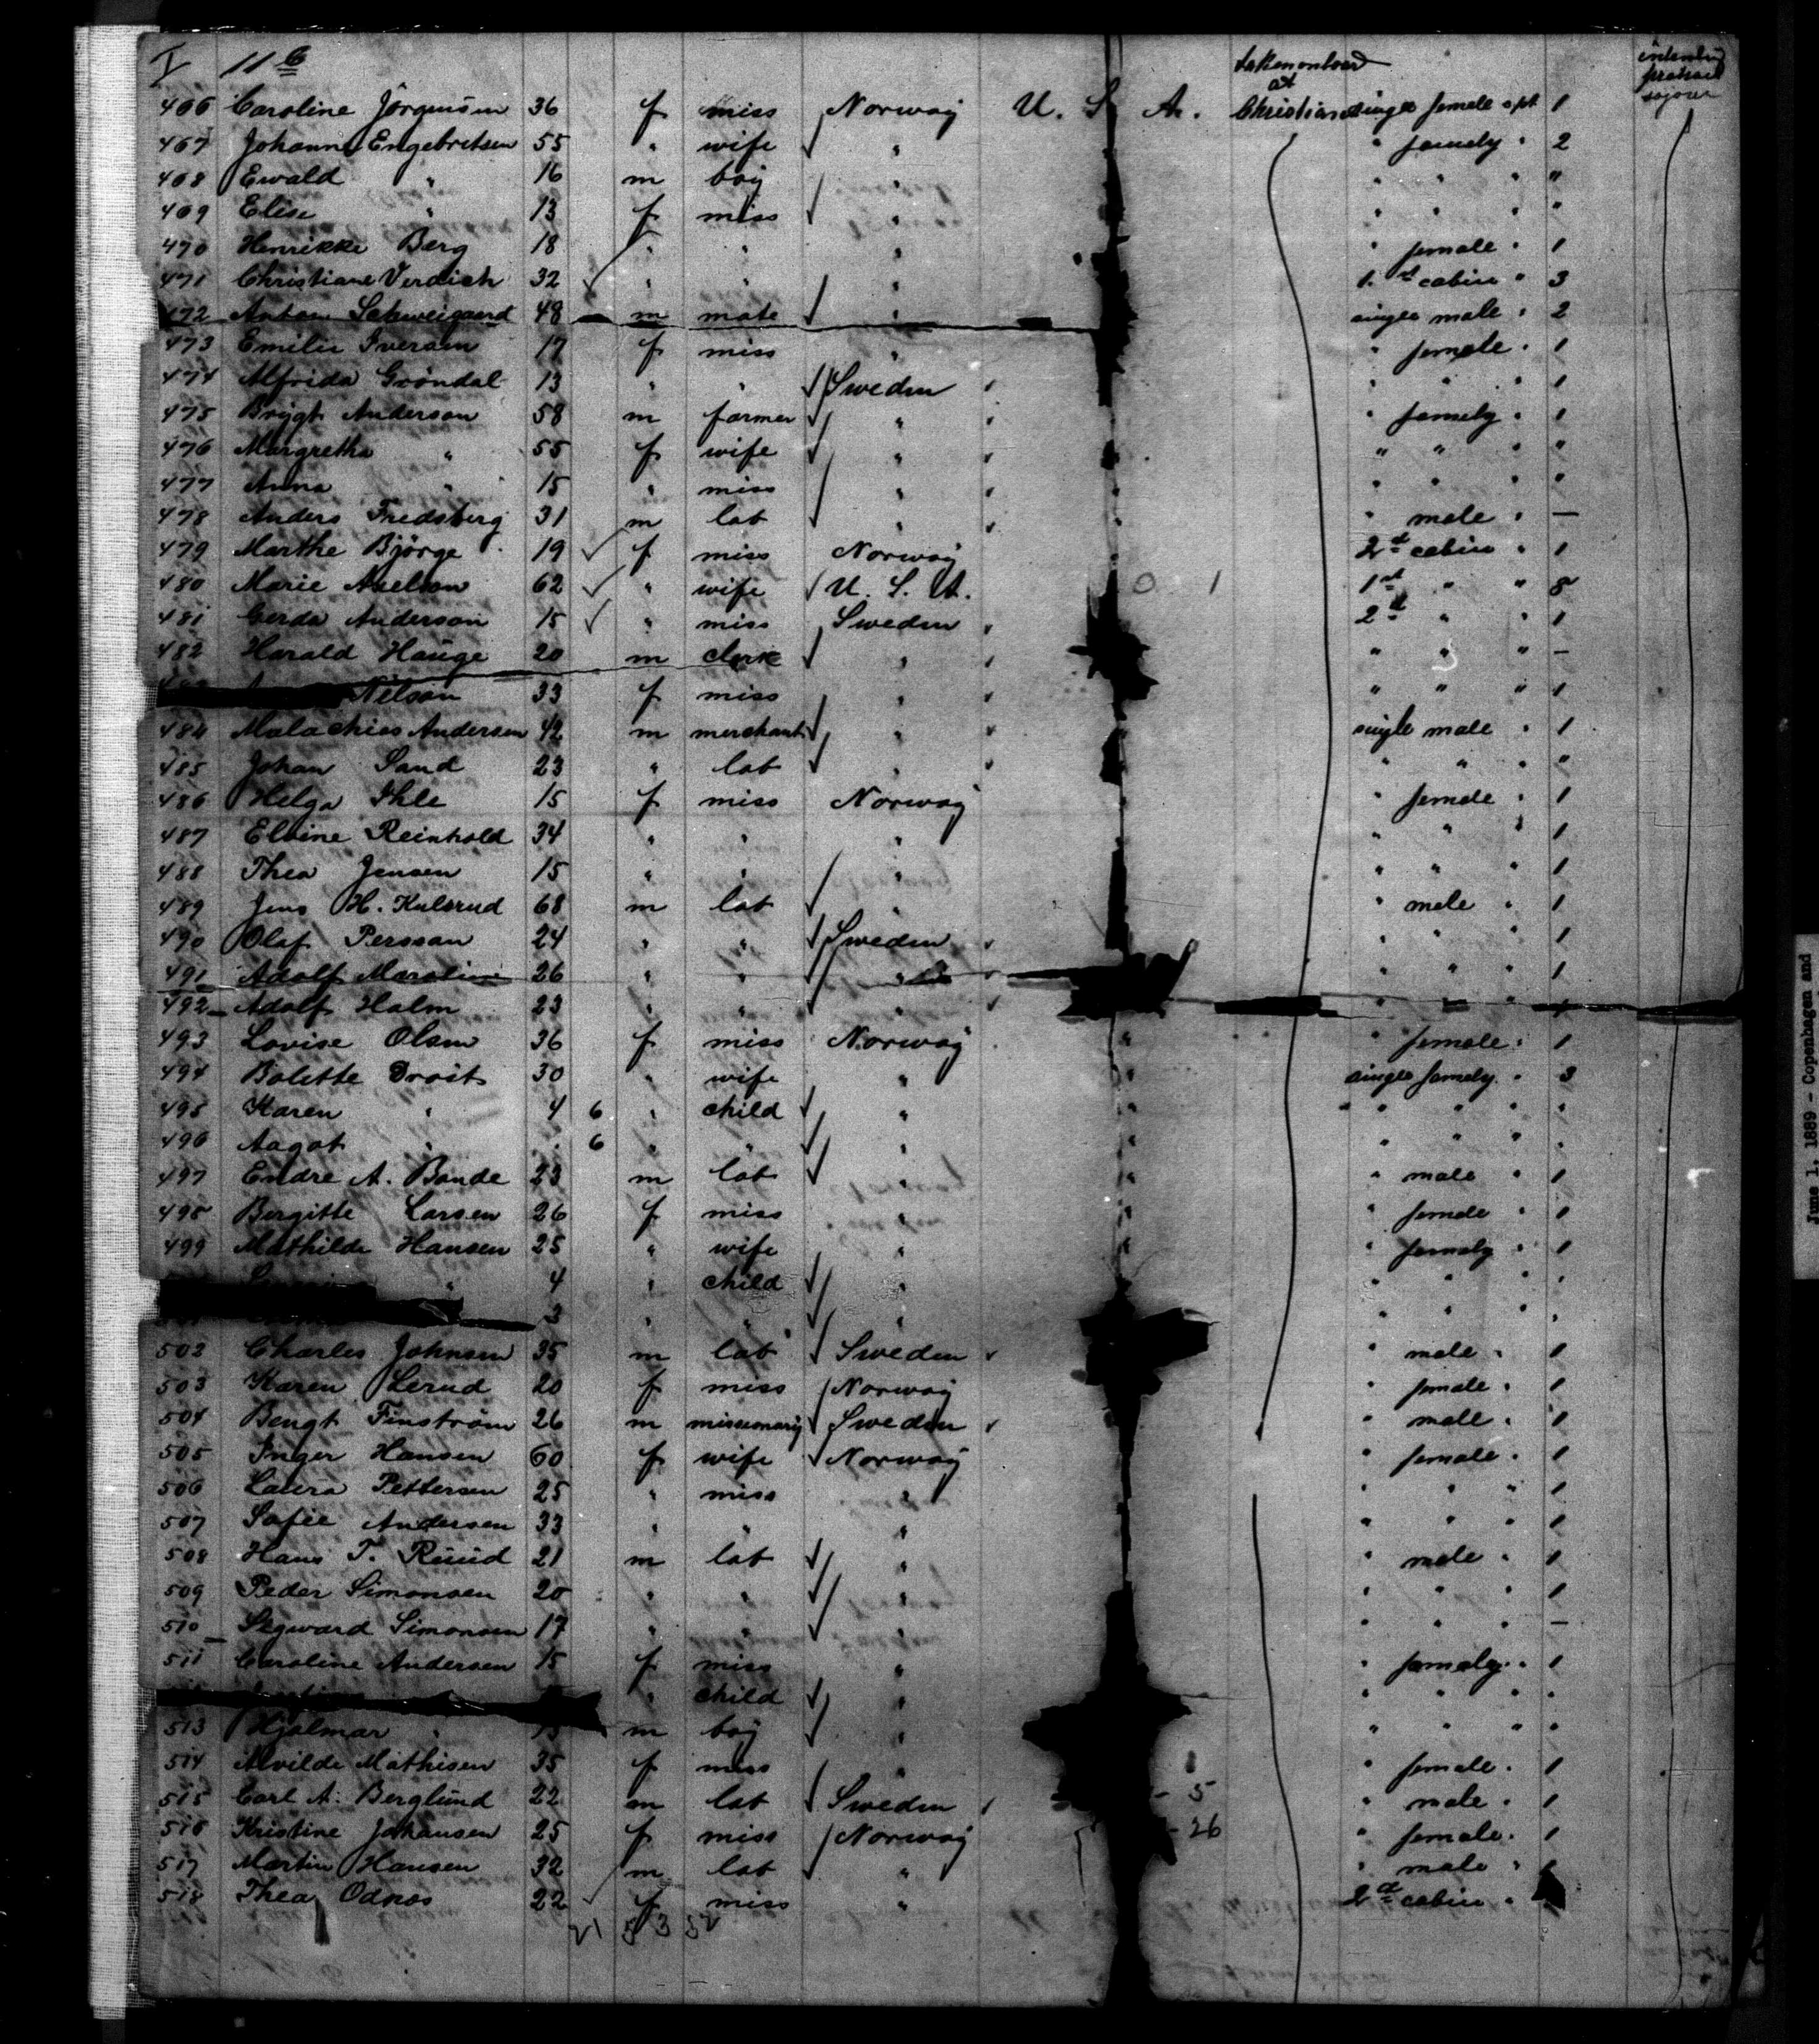 V 116 taken onboard intending protract
at sojour
466 Caroline Jörgensen 36 f miss Norway U. S. A. Christiania single femele apt 1
467 Johanne Engebretsen 55 " wife " " famely " 2
468 Ewald " 16 m boy " " " " "
469 Elise " 13 f miss " " " " "
470 Henrikke Berg 18 " " " " female " 1
471 Christiane Verdich 32 " " " 1.st cabin " 3
472 Anton Schweigaard 48 m mate " single male " 2
473 Emilie Iversen 17 f miss " " female " 1
474 Alfrida Gröndal 13 " " Sweden " " " 1
475 Brygt Anderson 58 m farmer " " famely " 1
476 Margretha " 55 f wife " " " " "
477 Anna " 15 " miss " " " " "
478 Anders Fredsberg 31 m lab " " male " —
479 Marthe Björge 19 f miss Norway 2d cabin " 1
480 Marie Axelson 62 " wife U. S. A. 0 1 1st " " 8
481 Gerda Anderson 15 " miss Sweden 2d " " 1
482 Harald Hauge 20 m clerk " " " " —
Nilson 33 f miss " " " " 1
484 Malachias Andersen 42 m merchant " single male " 1
485 Johan Sand 23 " lab " " " " "
486 Helga Ihle 15 f miss Norway " femele " 1
487 Elvine Reinhold 34 " " " " " " 1
488 Thea Jensen 15 " " " " " " 1
489 Jens H. Kulsrud 68 m lab " " mele " 1
490 Olaf Persson 24 " " Sweden " " " 1
491 Adolf 26 " " " " " " 1
492 Adolf Halm 23 " " " " " "
493 Lovise Olsen 36 f miss Norway " female " 1
494 Bolette 30 " wife " single famely " 3
495 Karen " 4 6 " child " " " " "
496 Aagot " " 6 " " " " " " "
497 Endre A. Bande 23 m lab " " male " 1
498 Bergitte Larsen 26 f miss " " femele " 1
499 Mathilde Hansen 25 " wife " " famely " 1
" 4 " child " " " " "
3 " " " " " " "
502 Charles Johnsen 35 m lab Sweden " male " 1
503 Karen Lerud 20 f miss Norway " female " 1
504 Bengt Finström 26 m missionary Sweden " male " 1
505 Inger Hansen 60 f wife Norway " female " 1
506 Laura Pettersen 25 " miss " " " " 1
507 Sofie Andersen 33 " " " " " " 1
508 Hans T. Ruud 21 m lab " " mele " 1
509 Peder Simonsen 20 " " " " " " 1
510 Sigward Simonsen 17 " " " " " " —
511 Caroline Andersen 15 f miss " " famely " 1
" child " " " " "
513 Hjalmar " 13 m boy " " " " "
514 Alvilde Mathisen 35 f miss " " female " 1
515 Carl A. Berglund 22 m lab Sweden - 5 " male " 1
516 Kristine Johansen 25 f miss Norway - 26 " female " 1
517 Martin Hansen 32 m lab " " male "
518 Thea Odnæs 22 f miss " 2d cabin "
21 5 3 52
June 1, 1889 - Copenhagen and